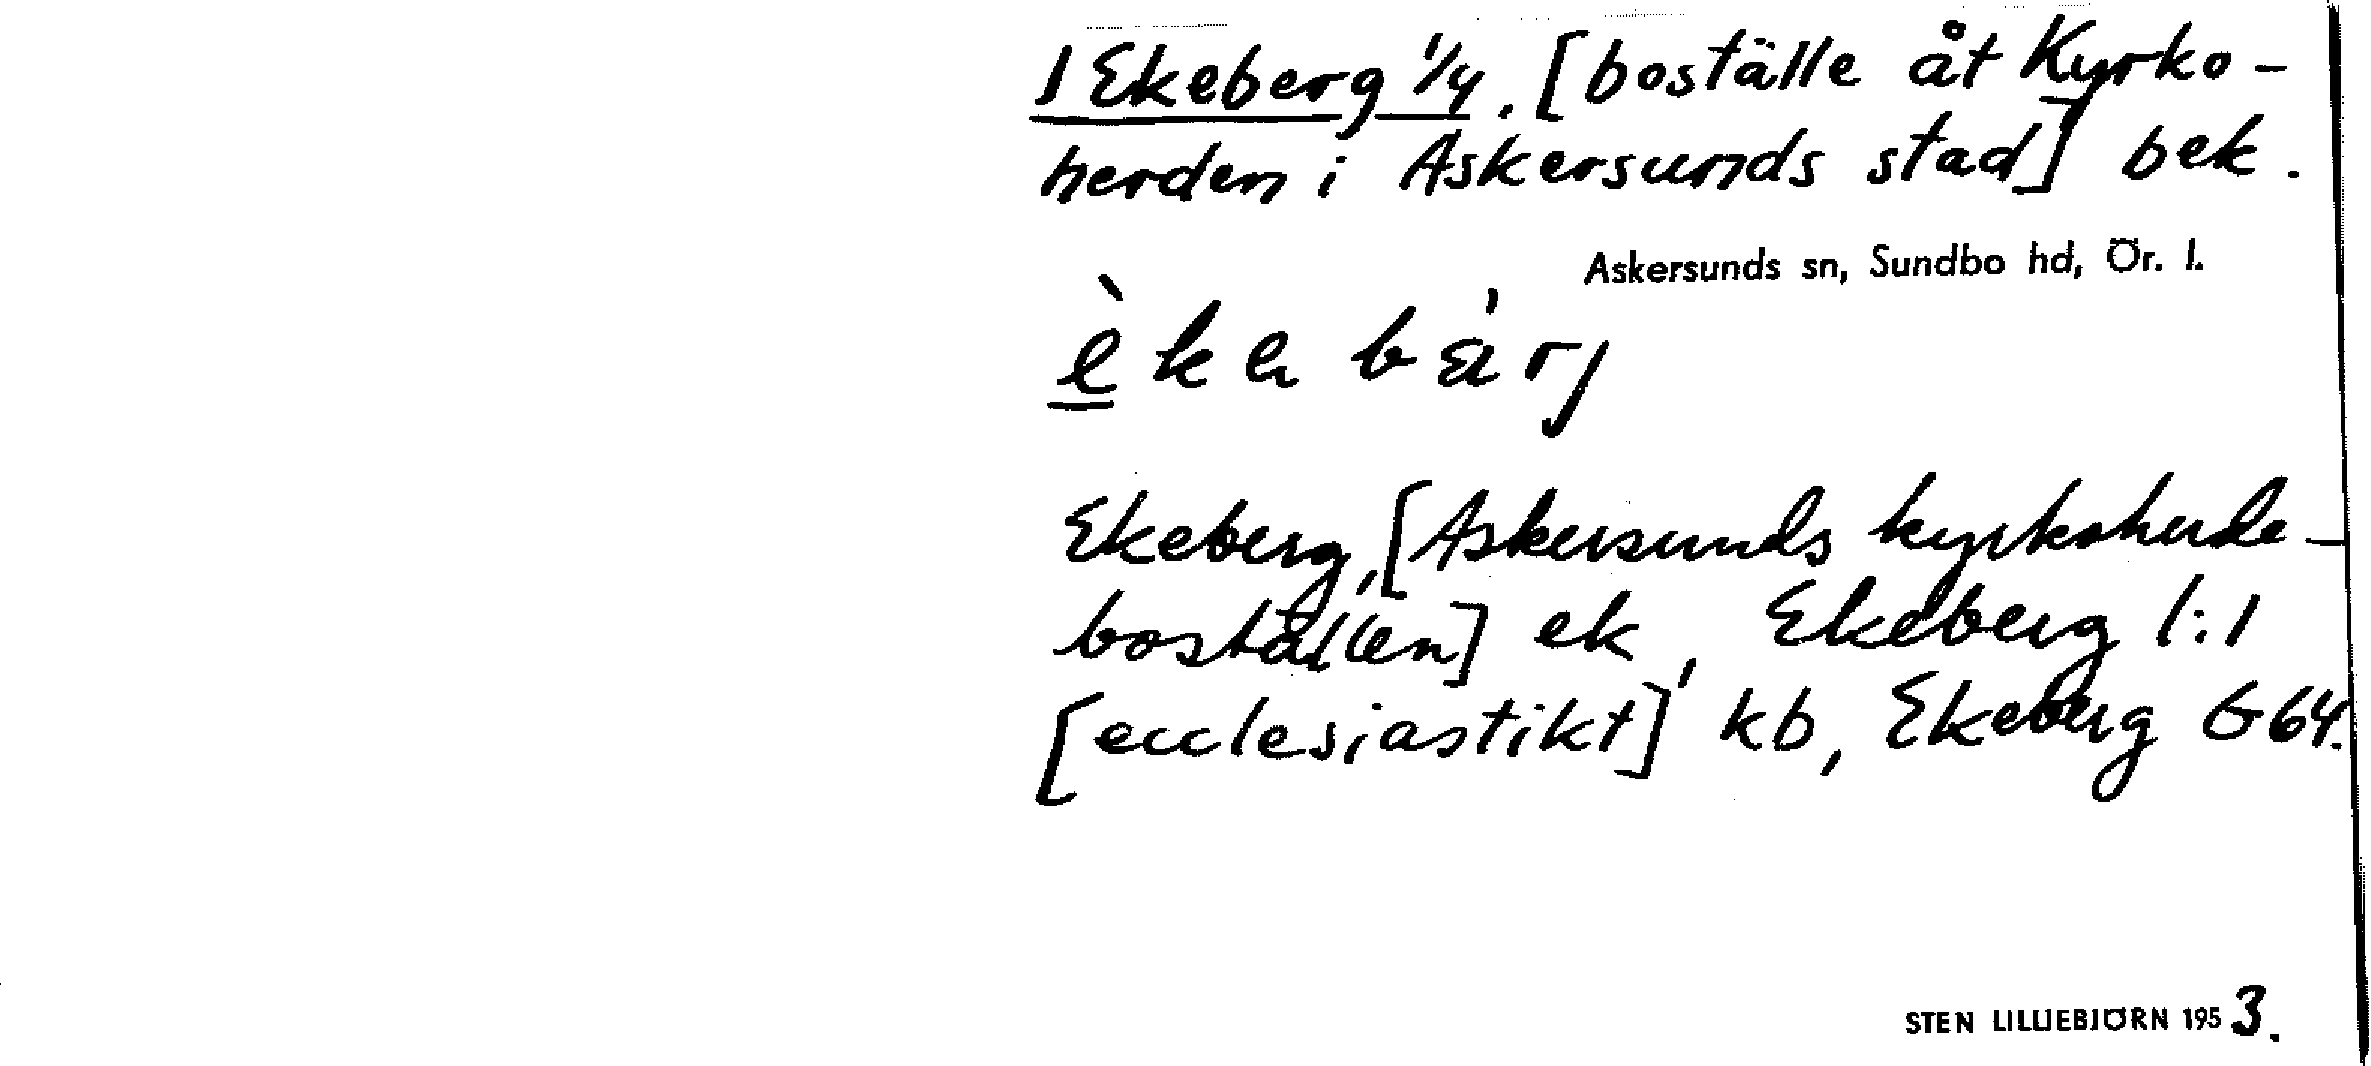 1 Ekeberg 1/4. [boställe åt Kyrko-
herden i Askersunds stad] bek.
Askersunds sn, Sundbo hd, Ör. l.
Ekeberg, [Askersunds kyrkoherde-
boställen] ek, Ekeberg 1:1
[ecclesiastikt] kb, Ekeberg G 64.
STEN LILLIEBJÖRN 1953.